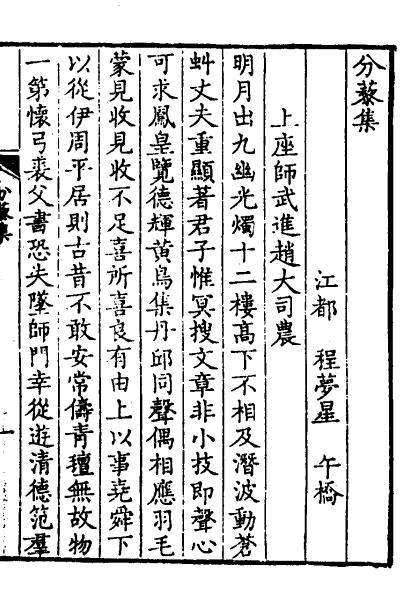 分藜集
江都 程夢星 午橋
上座師武進趙大司農
明月出九幽光燭十二樓髙下不相及潛波動蒼
虯丈夫重顯著君子惟冥搜文章非小技即聲心
可求鳳皇覽德輝黄鳥集丹邱同聲偶相應羽毛
蒙見收見收不足喜所喜良有由上以事堯舜下
以從伊周平居則古昔不敢安常儔青氊無故物
一第懷弓裘父書恐失墜師門幸從遊清德范羣
分藜集
一